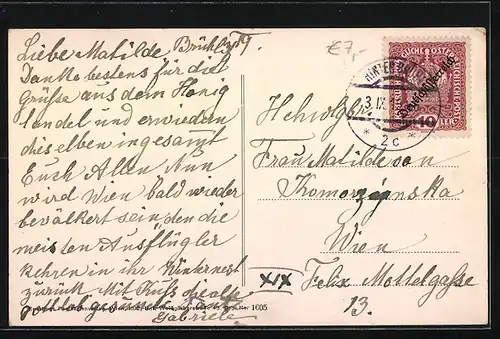 Liebe Matilde Brühl
Danke bestens für die
Grüße aus dem Honig
landel und erwiedern
dieselben insgesamt
Euch Allen. Nun
wird Wien bald wieder
bevölkert sein, den die
meisten Ausflügler
kehren in ihr Winternest
zurück. Mit Kuß die alte
Gabriele
1605
€7,-
HINTERBRÜHL
3.IX.
* 2c *
DEUTSCHÖSTERREICH
10
HELLER
Frau Matilde von
Komorzynska
Wien
XIX
Felix Mottelgaße
13.